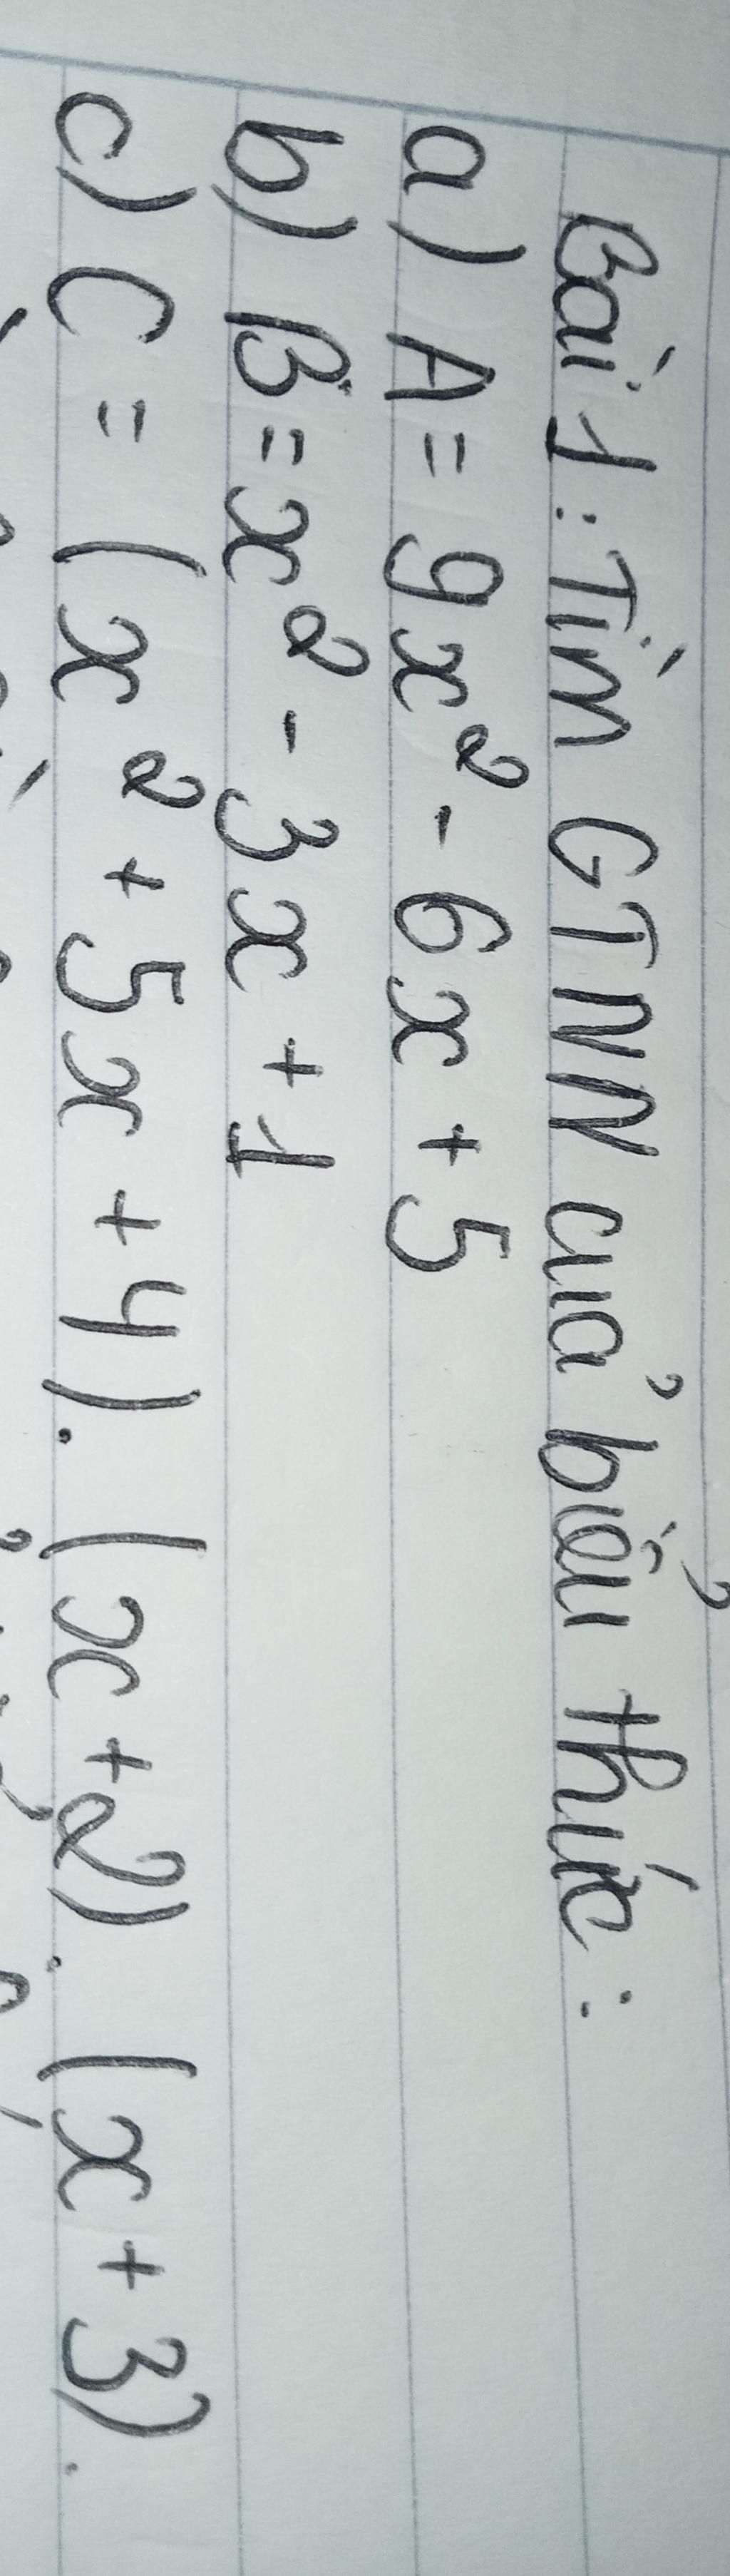 Bài 1: Tìm GTNN của biểu thức:
a) A = 9x² - 6x + 5
b) B = x² - 3x + 1
c) C = (x² + 5x + 4). (x + 2). (x + 3).